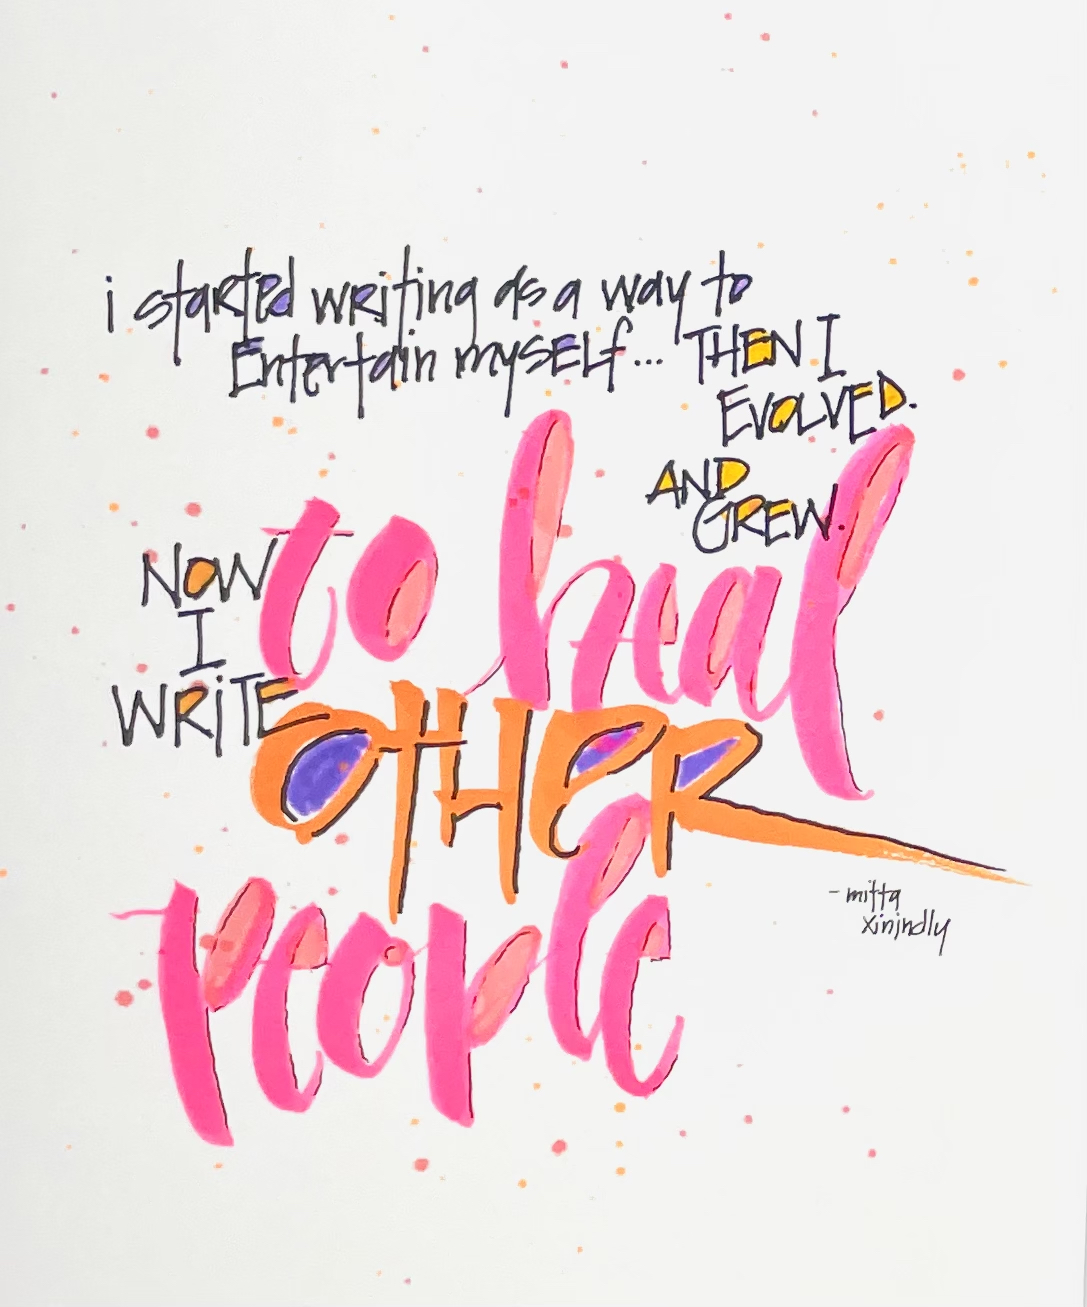 i started writing as a way to
Entertain mySELf... THEN I
EVOLVED.
AND
GREW.
NOW
I
WRiTE
to heal
OTHER
people
- mitta
xinindly